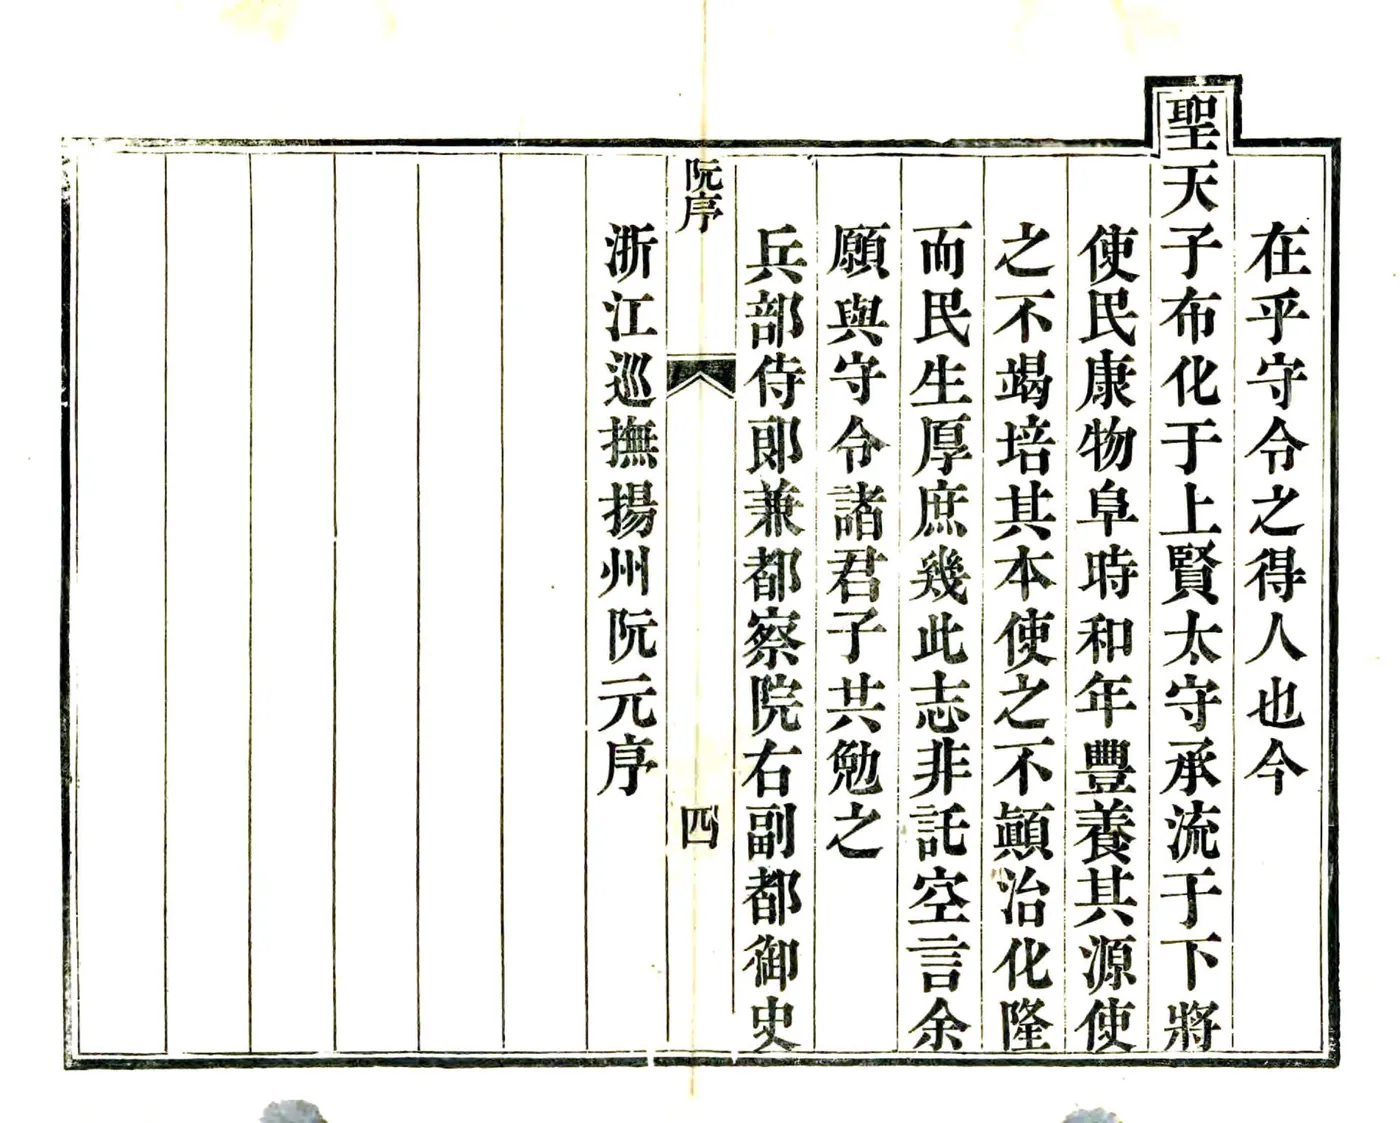 在乎守令之得人也今
聖天子布化于上賢太守承流于下將
使民康物阜時和年豐養其源使
之不竭培其本使之不顚治化隆
而民生厚庶幾此志非託空言余
願與守令諸君子共勉之
兵部侍郎兼都察院右副都御史
阮序
四
浙江巡撫揚州阮元序